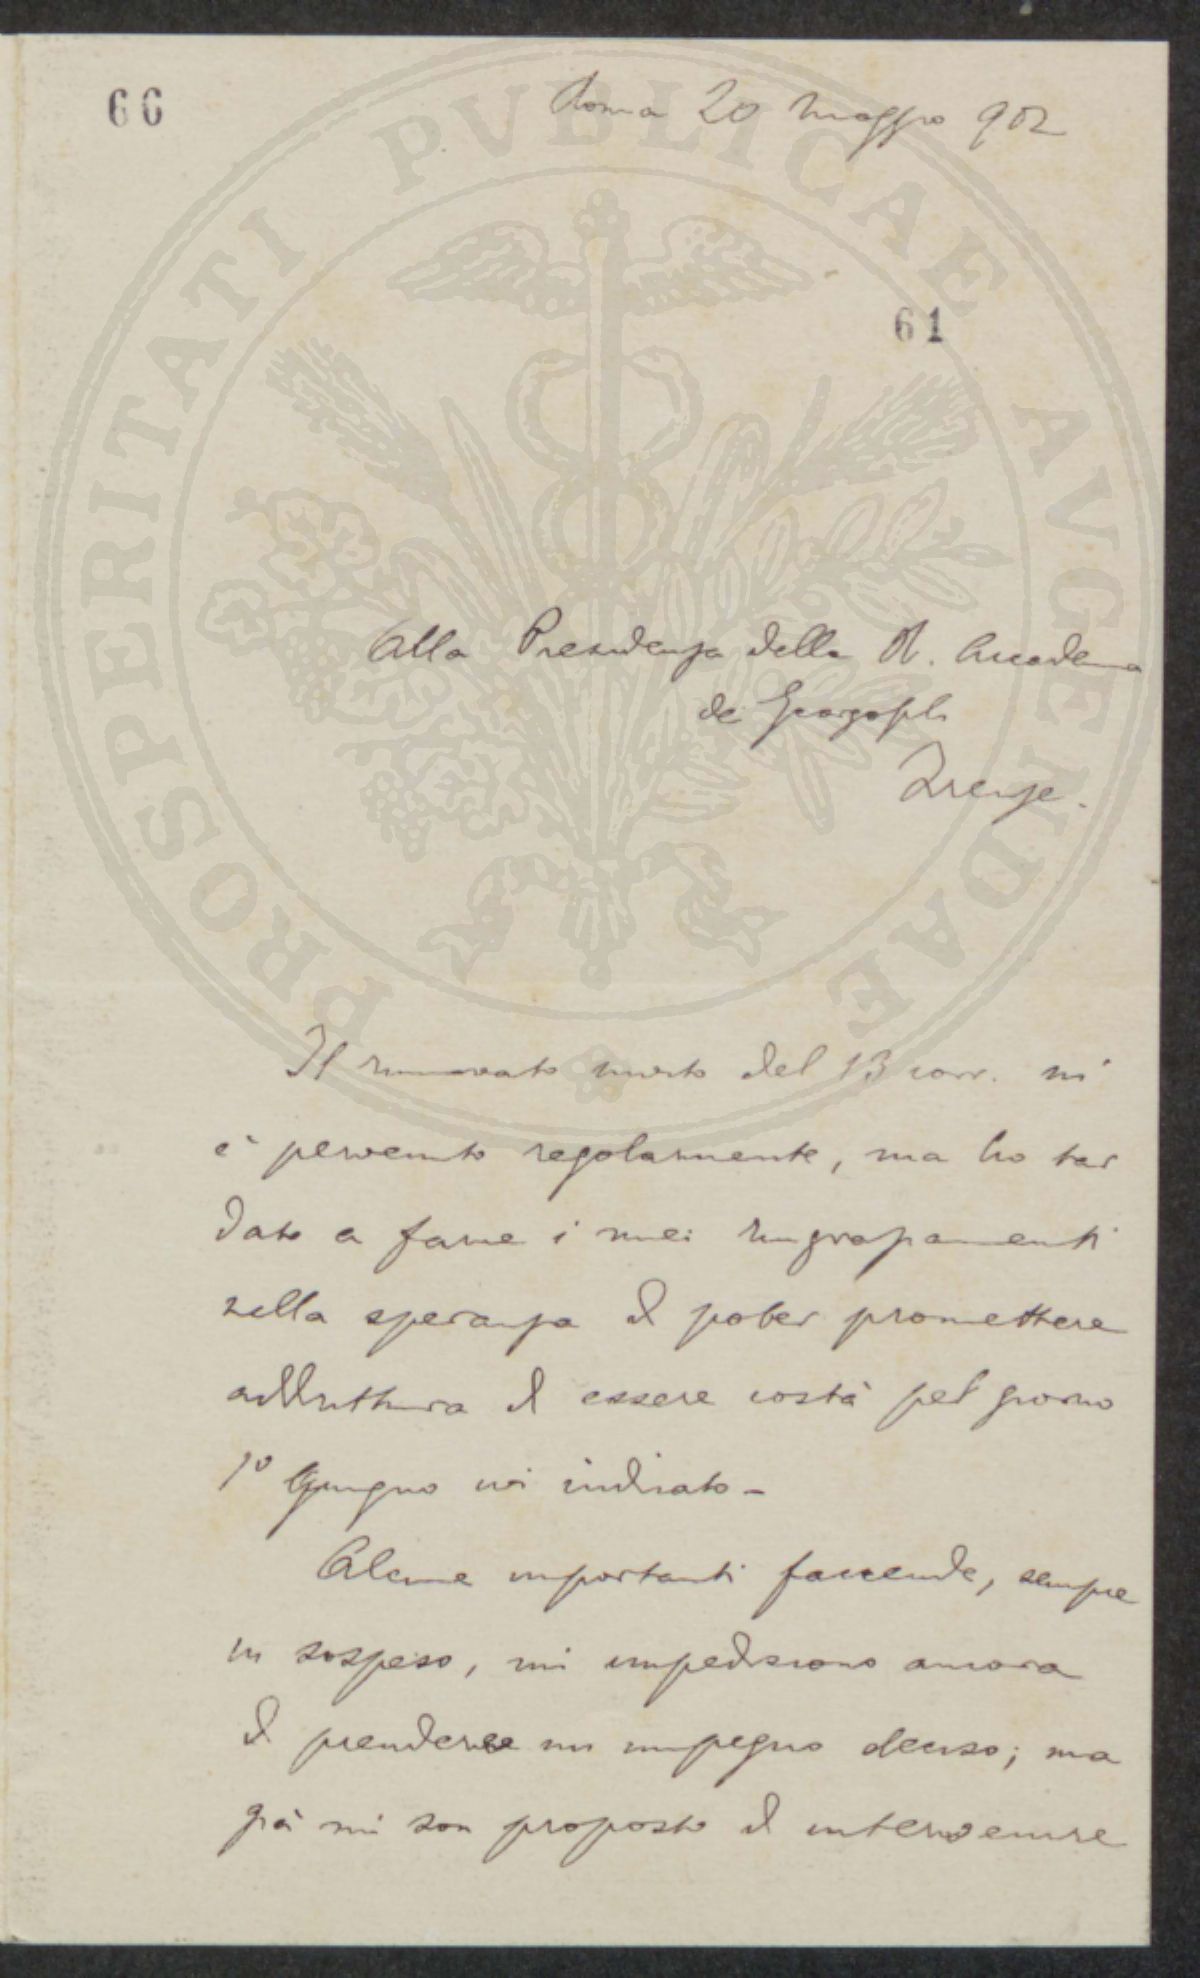 66
Roma 20 Maggio 902
61
Alla Presidenza della R. Accademia
dei Georgofili
Firenze.
Il rinnovato invito del 13 corr. mi
è pervenuto regolarmente, ma ho tar
dato a farne i miei ringraziamenti
nella speranza di poter promettere
addirittura di essere costà pel giorno
1º Giugno ivi indicato –
Alcune importanti faccende, sempre
in sospeso, mi impediscono ancora
di prendere un impegno deciso; ma
già mi son proposto di intervenire
PROSPERITATI PVBLICAE AVGENDAE